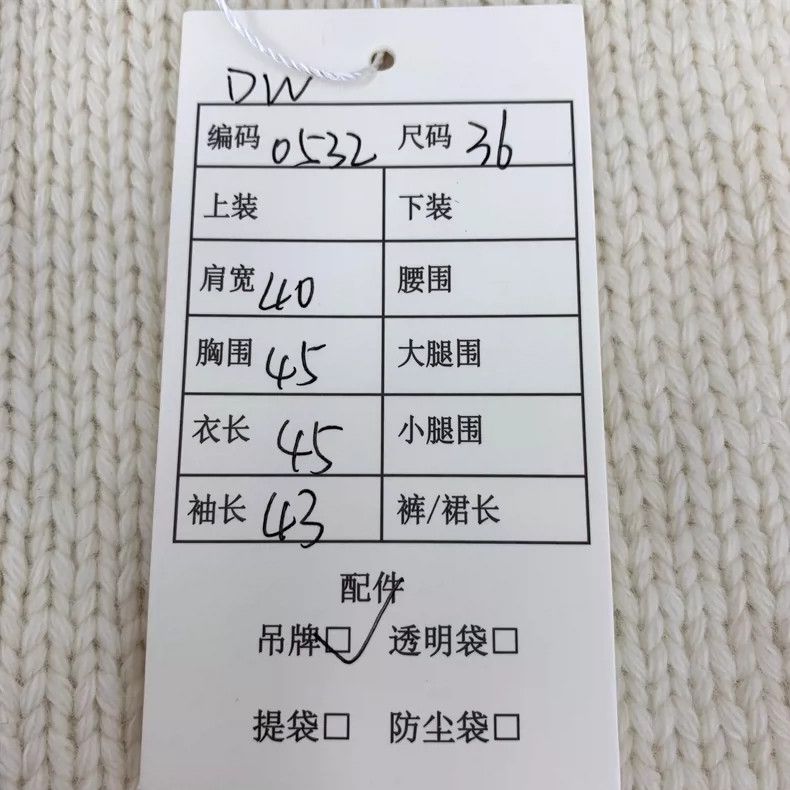 DW
编码 0532 尺码 36
上装 下装
肩宽 40 腰围
胸围 45 大腿围
衣长 45 小腿围
袖长 43 裤/裙长
配件
吊牌☑ 透明袋□
提袋□ 防尘袋□